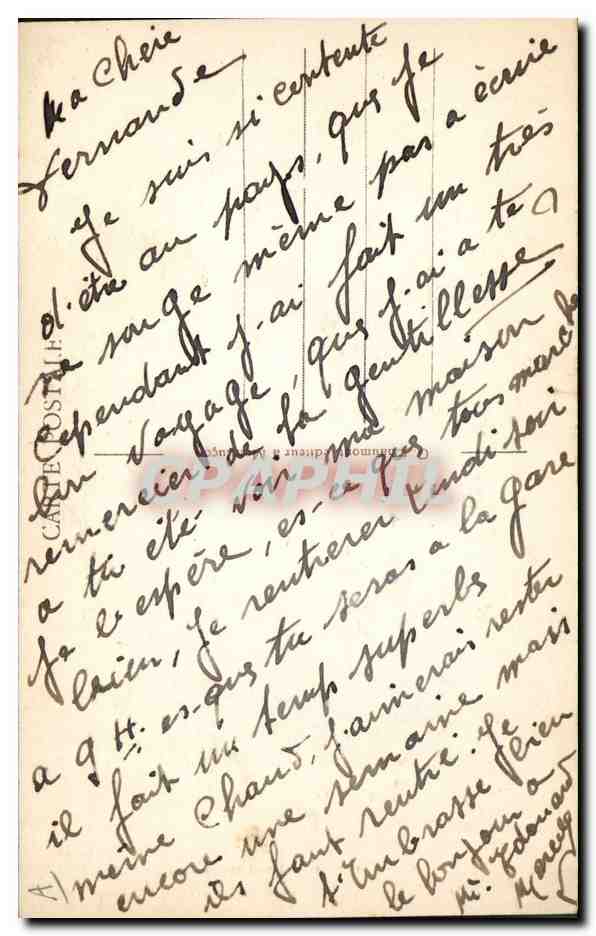 Ma Cheie
Fernande
Je suis si contente
d'être au pays, que je
ne songe même pas a écrire
Cependant j'ai fait un très
bon voyage, que j'ai a te
remercier de la gentillesse
a tu été voir ma maison
Je l'espère, es-ce que tous marche
bien, Je rentrerer lundi soir
a 9H. es-que tu seras a la gare
il fait un temps superbe
meine Chaud, j'aimerais rester
encore une semaine mais
ils faut rentré. Je
t'Embrasse bien
le bonjour a
Mr. Edouard
CARTE POSTALE
CPAPHIL